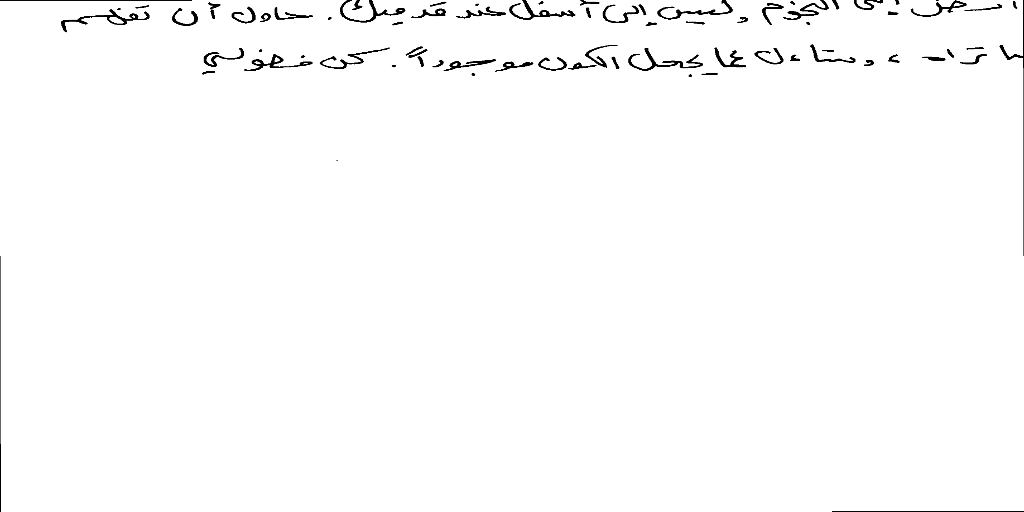 انظر إلى النجوم وليس إلى أسفل عند قدميك. حاول أن تفهم
ما تراه، وتساءل عما يجعل الكون موجوداً. كن فضولي